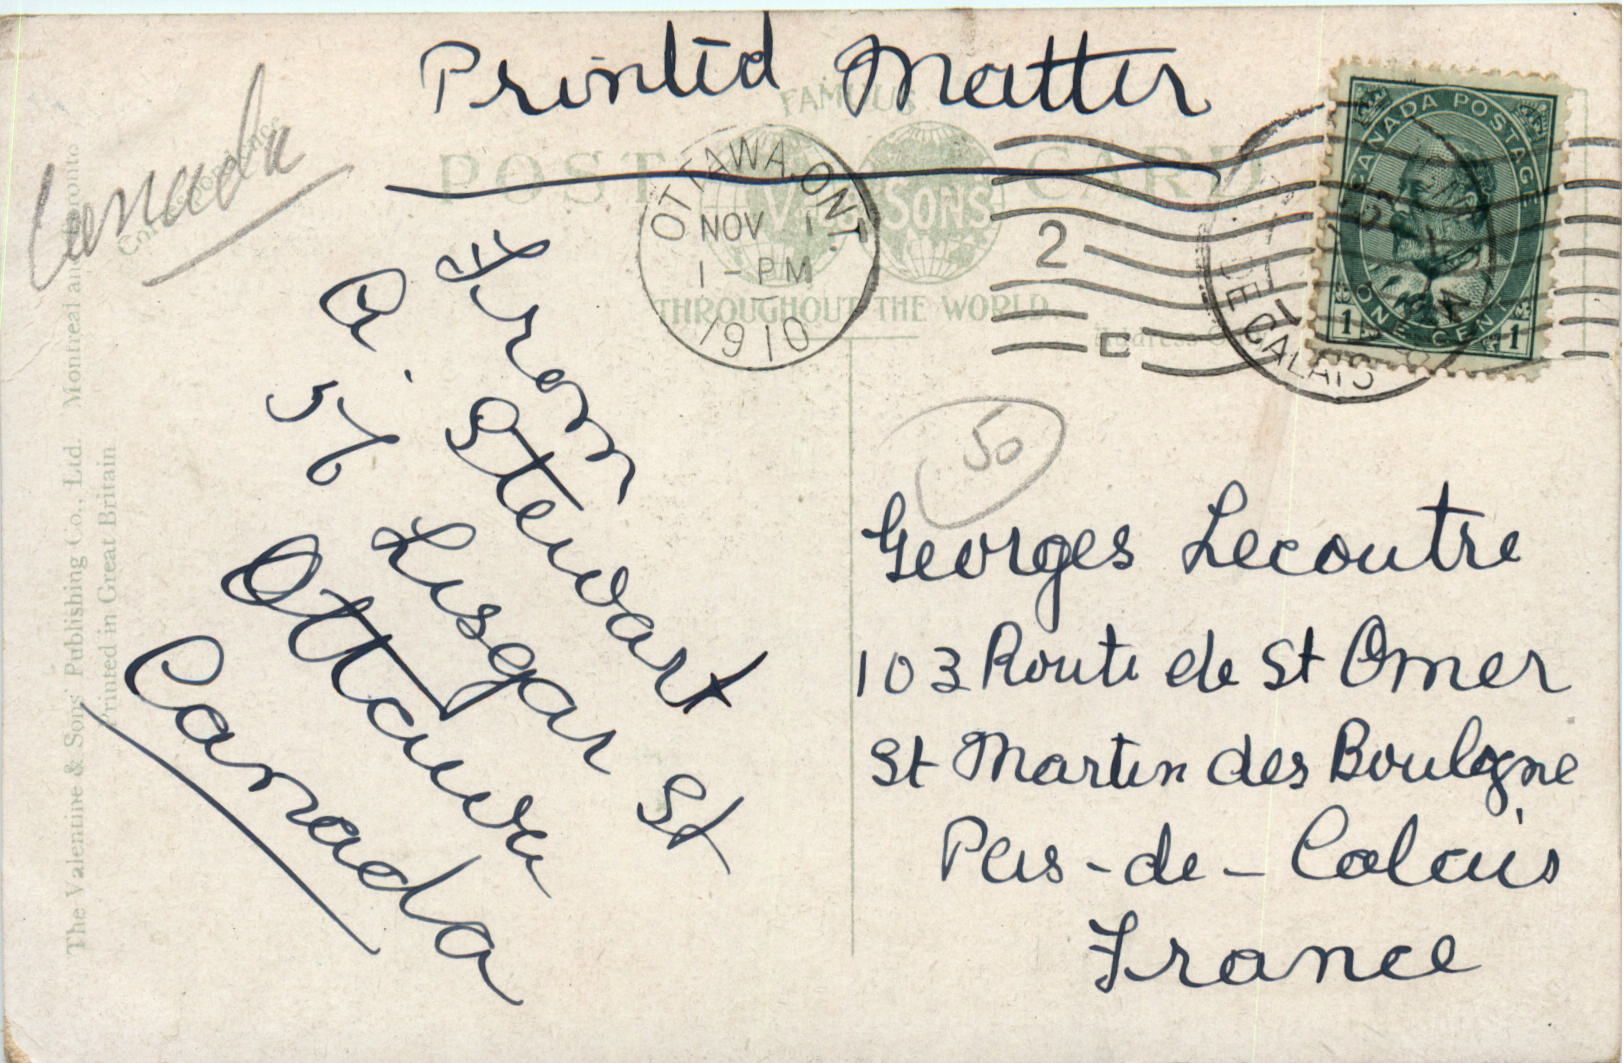 Printed Matter
Canada
FAMOUS
POST CARD
V SONS
THROUGHOUT THE WORLD
OTTAWA, ONT.
NOV 1
1 - PM
1910
2
C
CANADA POSTAGE
1 ONE CENT 1
DE CALAIS
50
From
A. Stewart
56 Lisgar St
Ottawa
Canada
Georges Lecoutre
103 Route de St Omer
St Martin des Boulogne
Pas-de-Calais
France
The Valentine & Sons' Publishing Co., Ltd. Montreal and Toronto
Printed in Great Britain